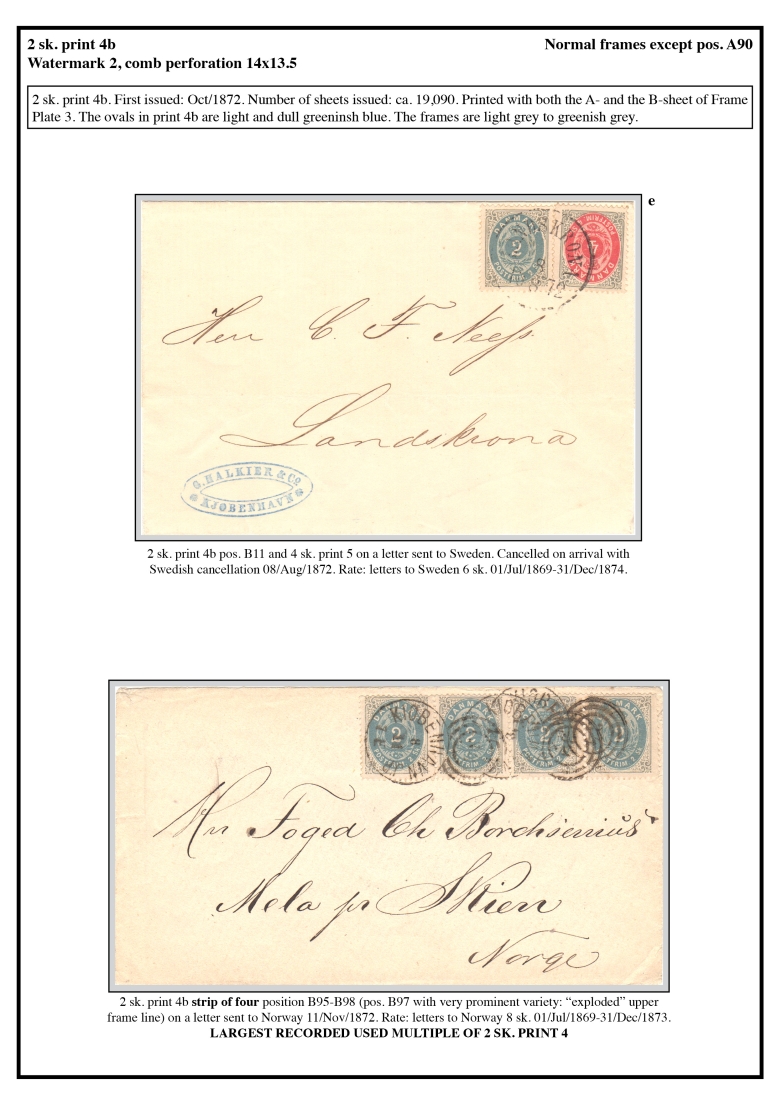 2 sk. print 4b
Normal frames except pos. A90
Watermark 2, comb perforation 14x13.5
2 sk. print 4b. First issued: Oct/1872. Number of sheets issued: ca. 19,090. Printed with both the A- and the B-sheet of Frame
Plate 3. The ovals in print 4b are light and dull greeninsh blue. The frames are light grey to greenish grey.
e
DANMARK
2
POSTFRIM
Herr C. F. Neess
Landskrona
G. HALKIER & Co
KJØBENHAVN
2 sk. print 4b pos. B11 and 4 sk. print 5 on a letter sent to Sweden. Cancelled on arrival with
Swedish cancellation 08/Aug/1872. Rate: letters to Sweden 6 sk. 01/Jul/1869-31/Dec/1874.
KIØBENHAVN
2
Hr Foged Ch Borchsenius
Mela pr Skien
Norge
2 sk. print 4b strip of four position B95-B98 (pos. B97 with very prominent variety: “exploded” upper
frame line) on a letter sent to Norway 11/Nov/1872. Rate: letters to Norway 8 sk. 01/Jul/1869-31/Dec/1873.
LARGEST RECORDED USED MULTIPLE OF 2 SK. PRINT 4